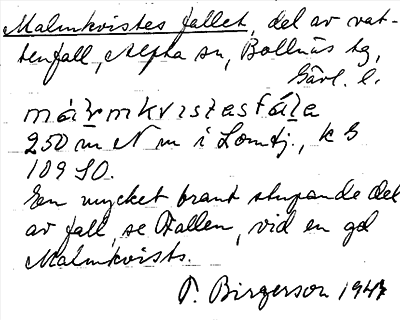 Malmkvistes fallet, del av vat-
tenfall, Alfta sn, Bollnäs tg,
Gävl. l.
málmkvɪstasfála
250 m N m i Lomtj., k G
109 SO.
En mycket brant stupande del
av fall, se Fallen, vid en gd
Malmkvists.
T. Birgerson 1947